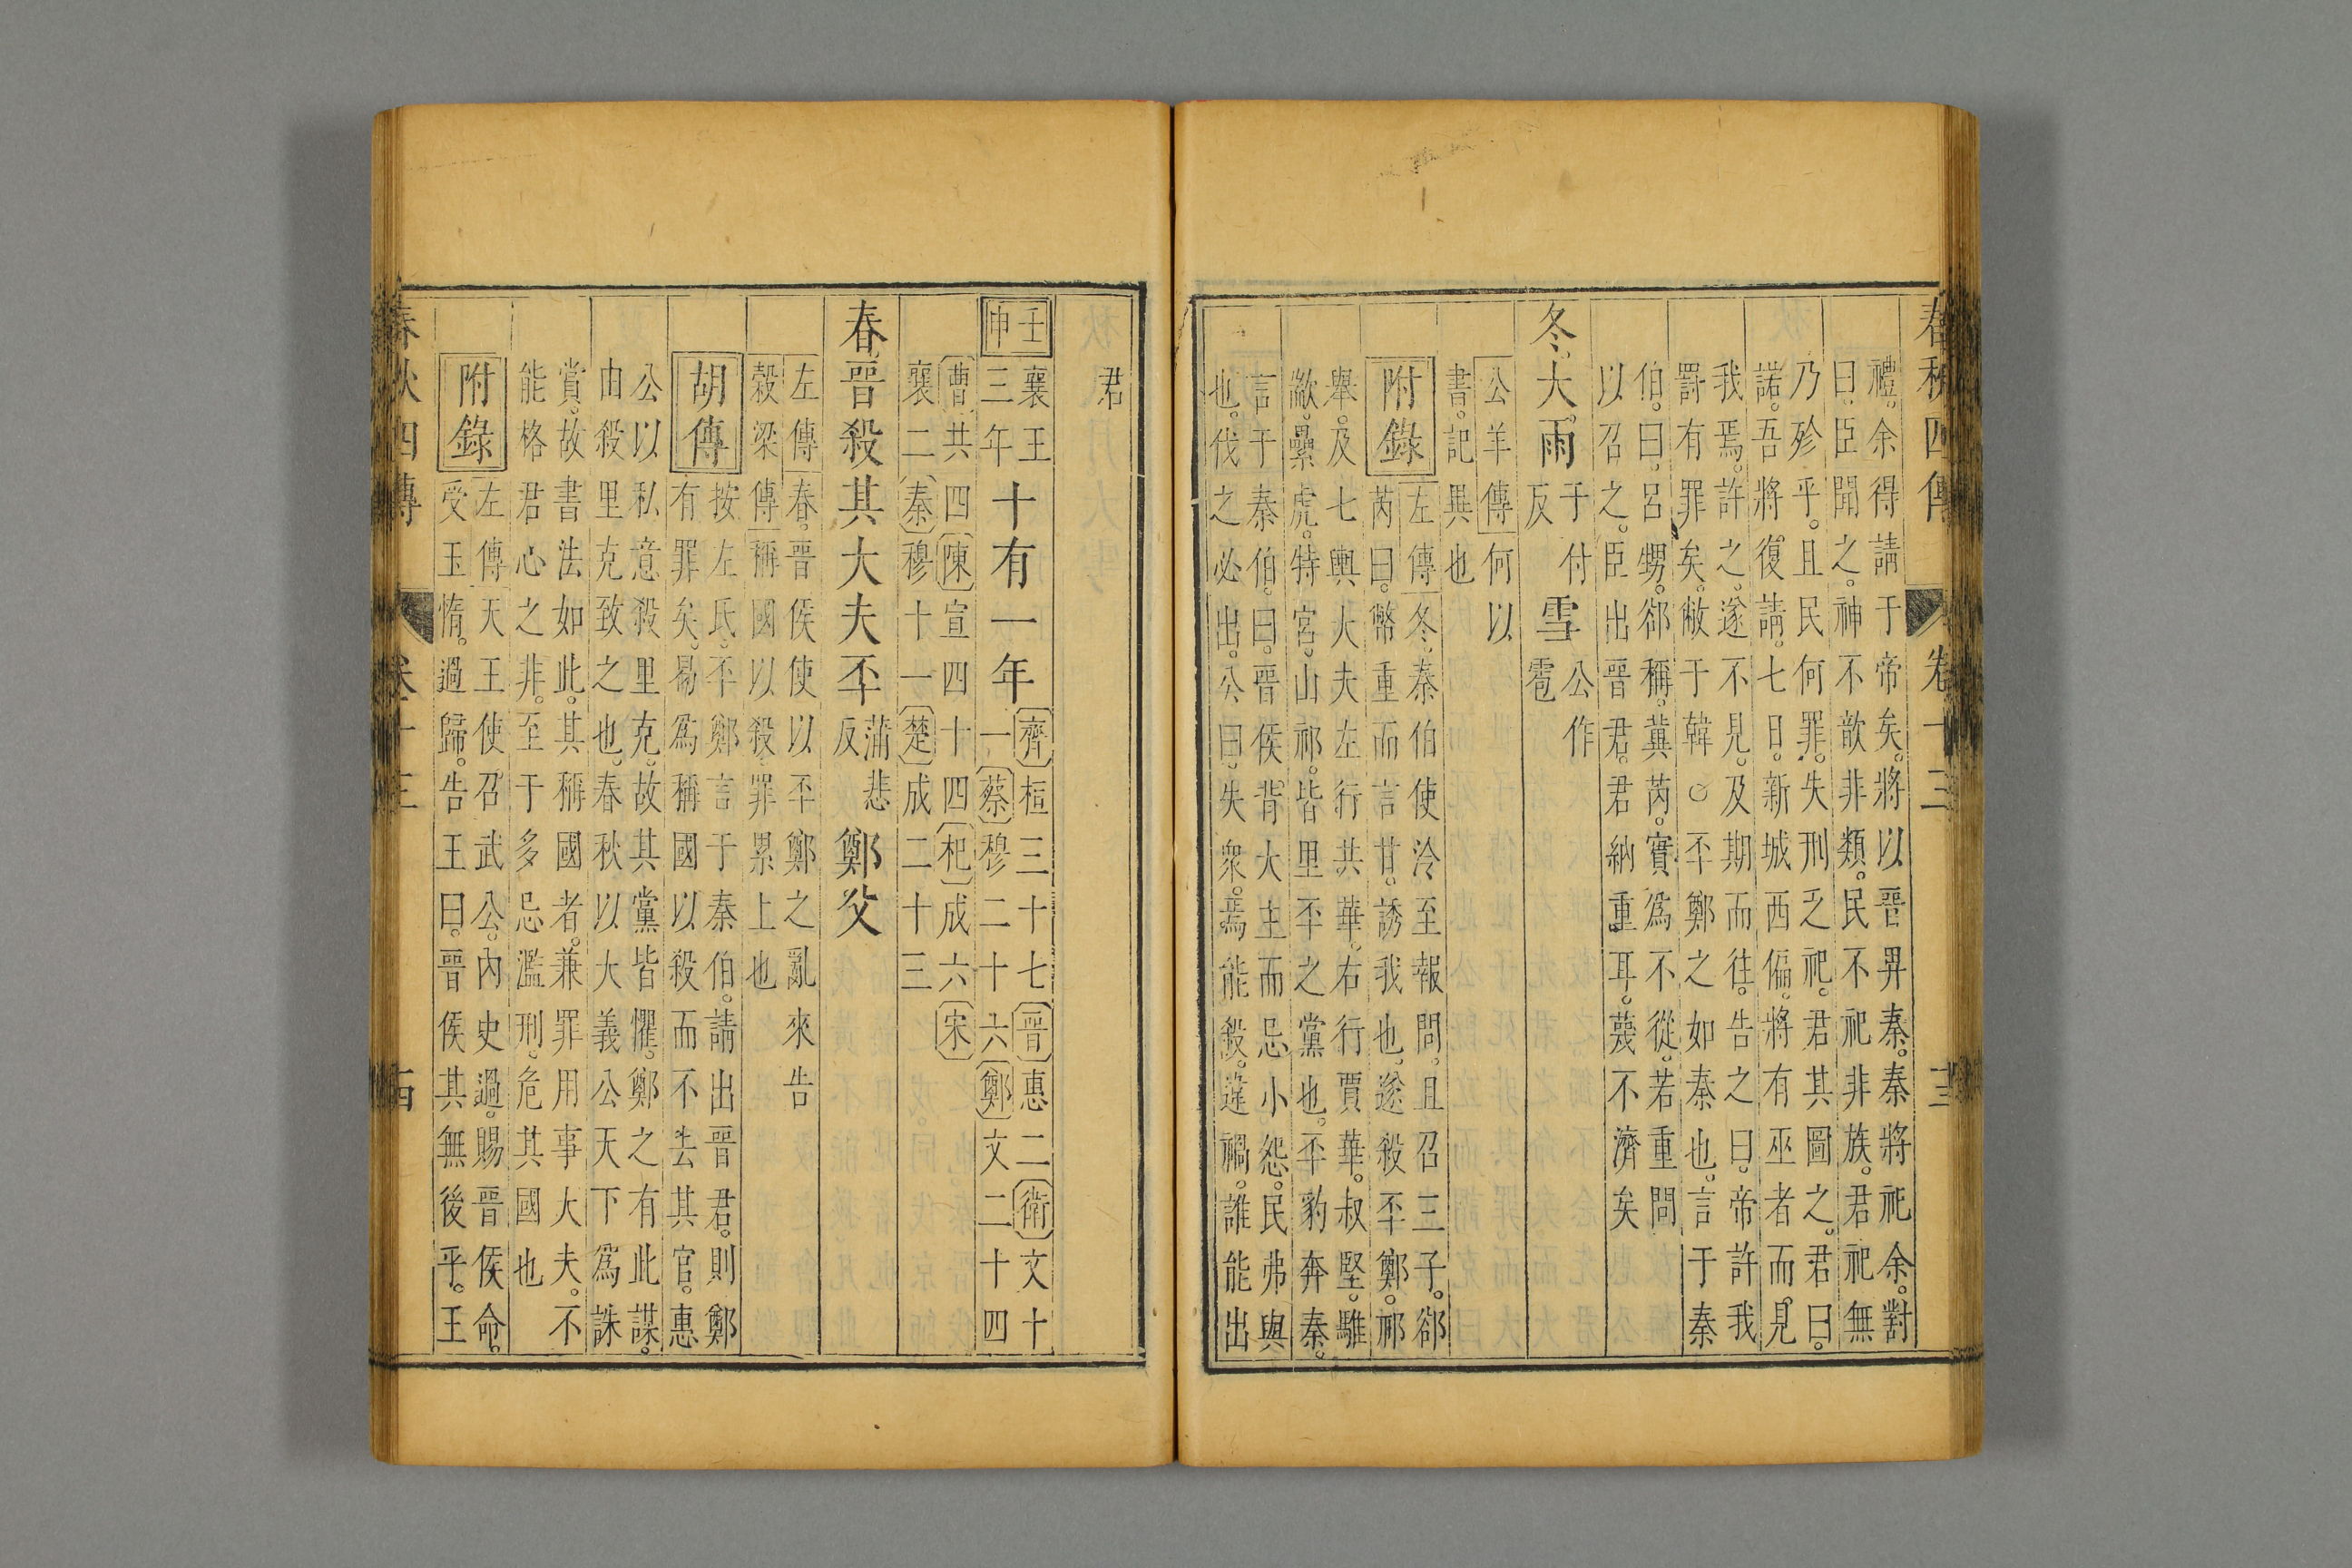 春秋四傳 卷十三
禮。余得請于帝矣。將以晉畀秦。秦將祀余。對
曰。臣聞之。神不歆非類。民不祀非族。君祀無
乃殄乎。且民何罪。失刑乏祀。君其圖之。君曰。
諾。吾將復請。七日。新城西偏。將有巫者而見
我焉。許之。遂不見。及期而往。告之曰。帝許我
罰有罪矣。敝于韓○丕鄭之如秦也。言于秦
伯。曰。呂甥。郤稱。冀芮。實爲不從。若重問
以召之。臣出晉君。君納重耳。蔑不濟矣
冬。大雨于付反雪公作雹
公羊傳何以
書。記異也
附錄
左傳冬。秦伯使泠至報問。且召三子。郤
芮曰。幣重而言甘。誘我也。遂殺丕鄭。祁
舉。及七輿大夫左行共華。右行賈華。叔堅。騅
歂。纍虎。特宮。山祁。皆里丕之黨也。丕豹奔秦。
言于秦伯。曰。晉侯背大主而忌小怨。民弗與
也。伐之必出。公曰。失衆。焉能殺。違禍。誰能出
君
壬申
襄王三年
十有一年
齊桓三十七晉惠二衛文十
一蔡穆二十六鄭文二十四
曹共四陳宣四十四杞成六宋
襄二秦穆十一楚成二十三
春。晉殺其大夫丕蒲悲反鄭父
左傳春。晉侯使以丕鄭之亂來告
穀梁傳稱國以殺。罪累上也
胡傳
按左氏。丕鄭言于秦伯。請出晉君。則鄭
有罪矣。曷爲稱國以殺而不去其官。惠
公以私意殺里克。故其黨皆懼。鄭之有此謀。
由殺里克致之也。春秋以大義公天下爲誅
賞。故書法如此。其稱國者。兼罪用事大夫。不
能格君心之非。至于多忌濫刑。危其國也
附錄
左傳天王使召武公。內史過。賜晉侯命。
受玉惰。過歸。告王曰。晉侯其無後乎。王
春秋四傳 卷十三